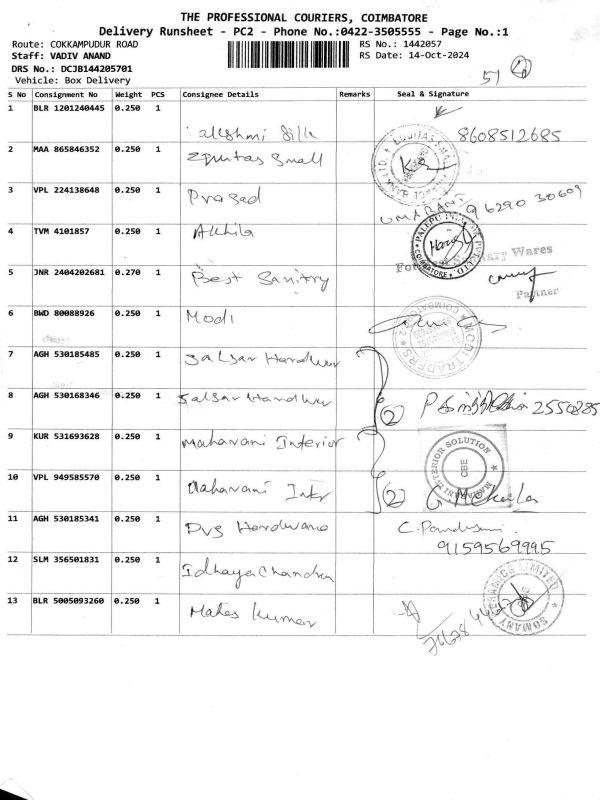 THE PROFESSIONAL COURIERS, COIMBATORE
Delivery Runsheet - PC2 - Phone No.:0422-3505555 - Page No.:1
Route: COKKAMPUDUR ROAD RS No.: 1442057
Staff: VADIV ANAND RS Date: 14-Oct-2024
DRS No.: DCJB144205701
Vehicle: Box Delivery 51
S No Consignment No Weight PCS Consignee Details Remarks Seal & Signature
1 BLR 1201240445 0.250 1 Lakshmi Silk 8608512685
2 MAA 865846352 0.250 1 Equitas Small
3 VPL 224138648 0.250 1 Prasad UMARANI 96290 30609
4 TVM 4101857 0.250 1 Akhila
COIMBATORE
5 JNR 2404202681 0.270 1 Best Sanitry
Sanitary Wares
Partner
6 BWD 80088926 0.250 1 Modi
MODI TRADERS
7 AGH 530185485 0.250 1 Salsar Hardwar
8 AGH 530168346 0.250 1 Salsar Hardwar (2) 2550885
9 KUR 531693628 0.250 1 Maharani Interior
MAHARANI INTERIOR SOLUTION CBE
10 VPL 949585570 0.250 1 Maharani Intr (2)
11 AGH 530185341 0.250 1 Pvs Hardware C. Pandiswari
9159569995
12 SLM 356501831 0.250 1 Idhaya Chandra
13 BLR 5005093260 0.250 1 Mahes Kumar
SOMANY CERAMICS LIMITED